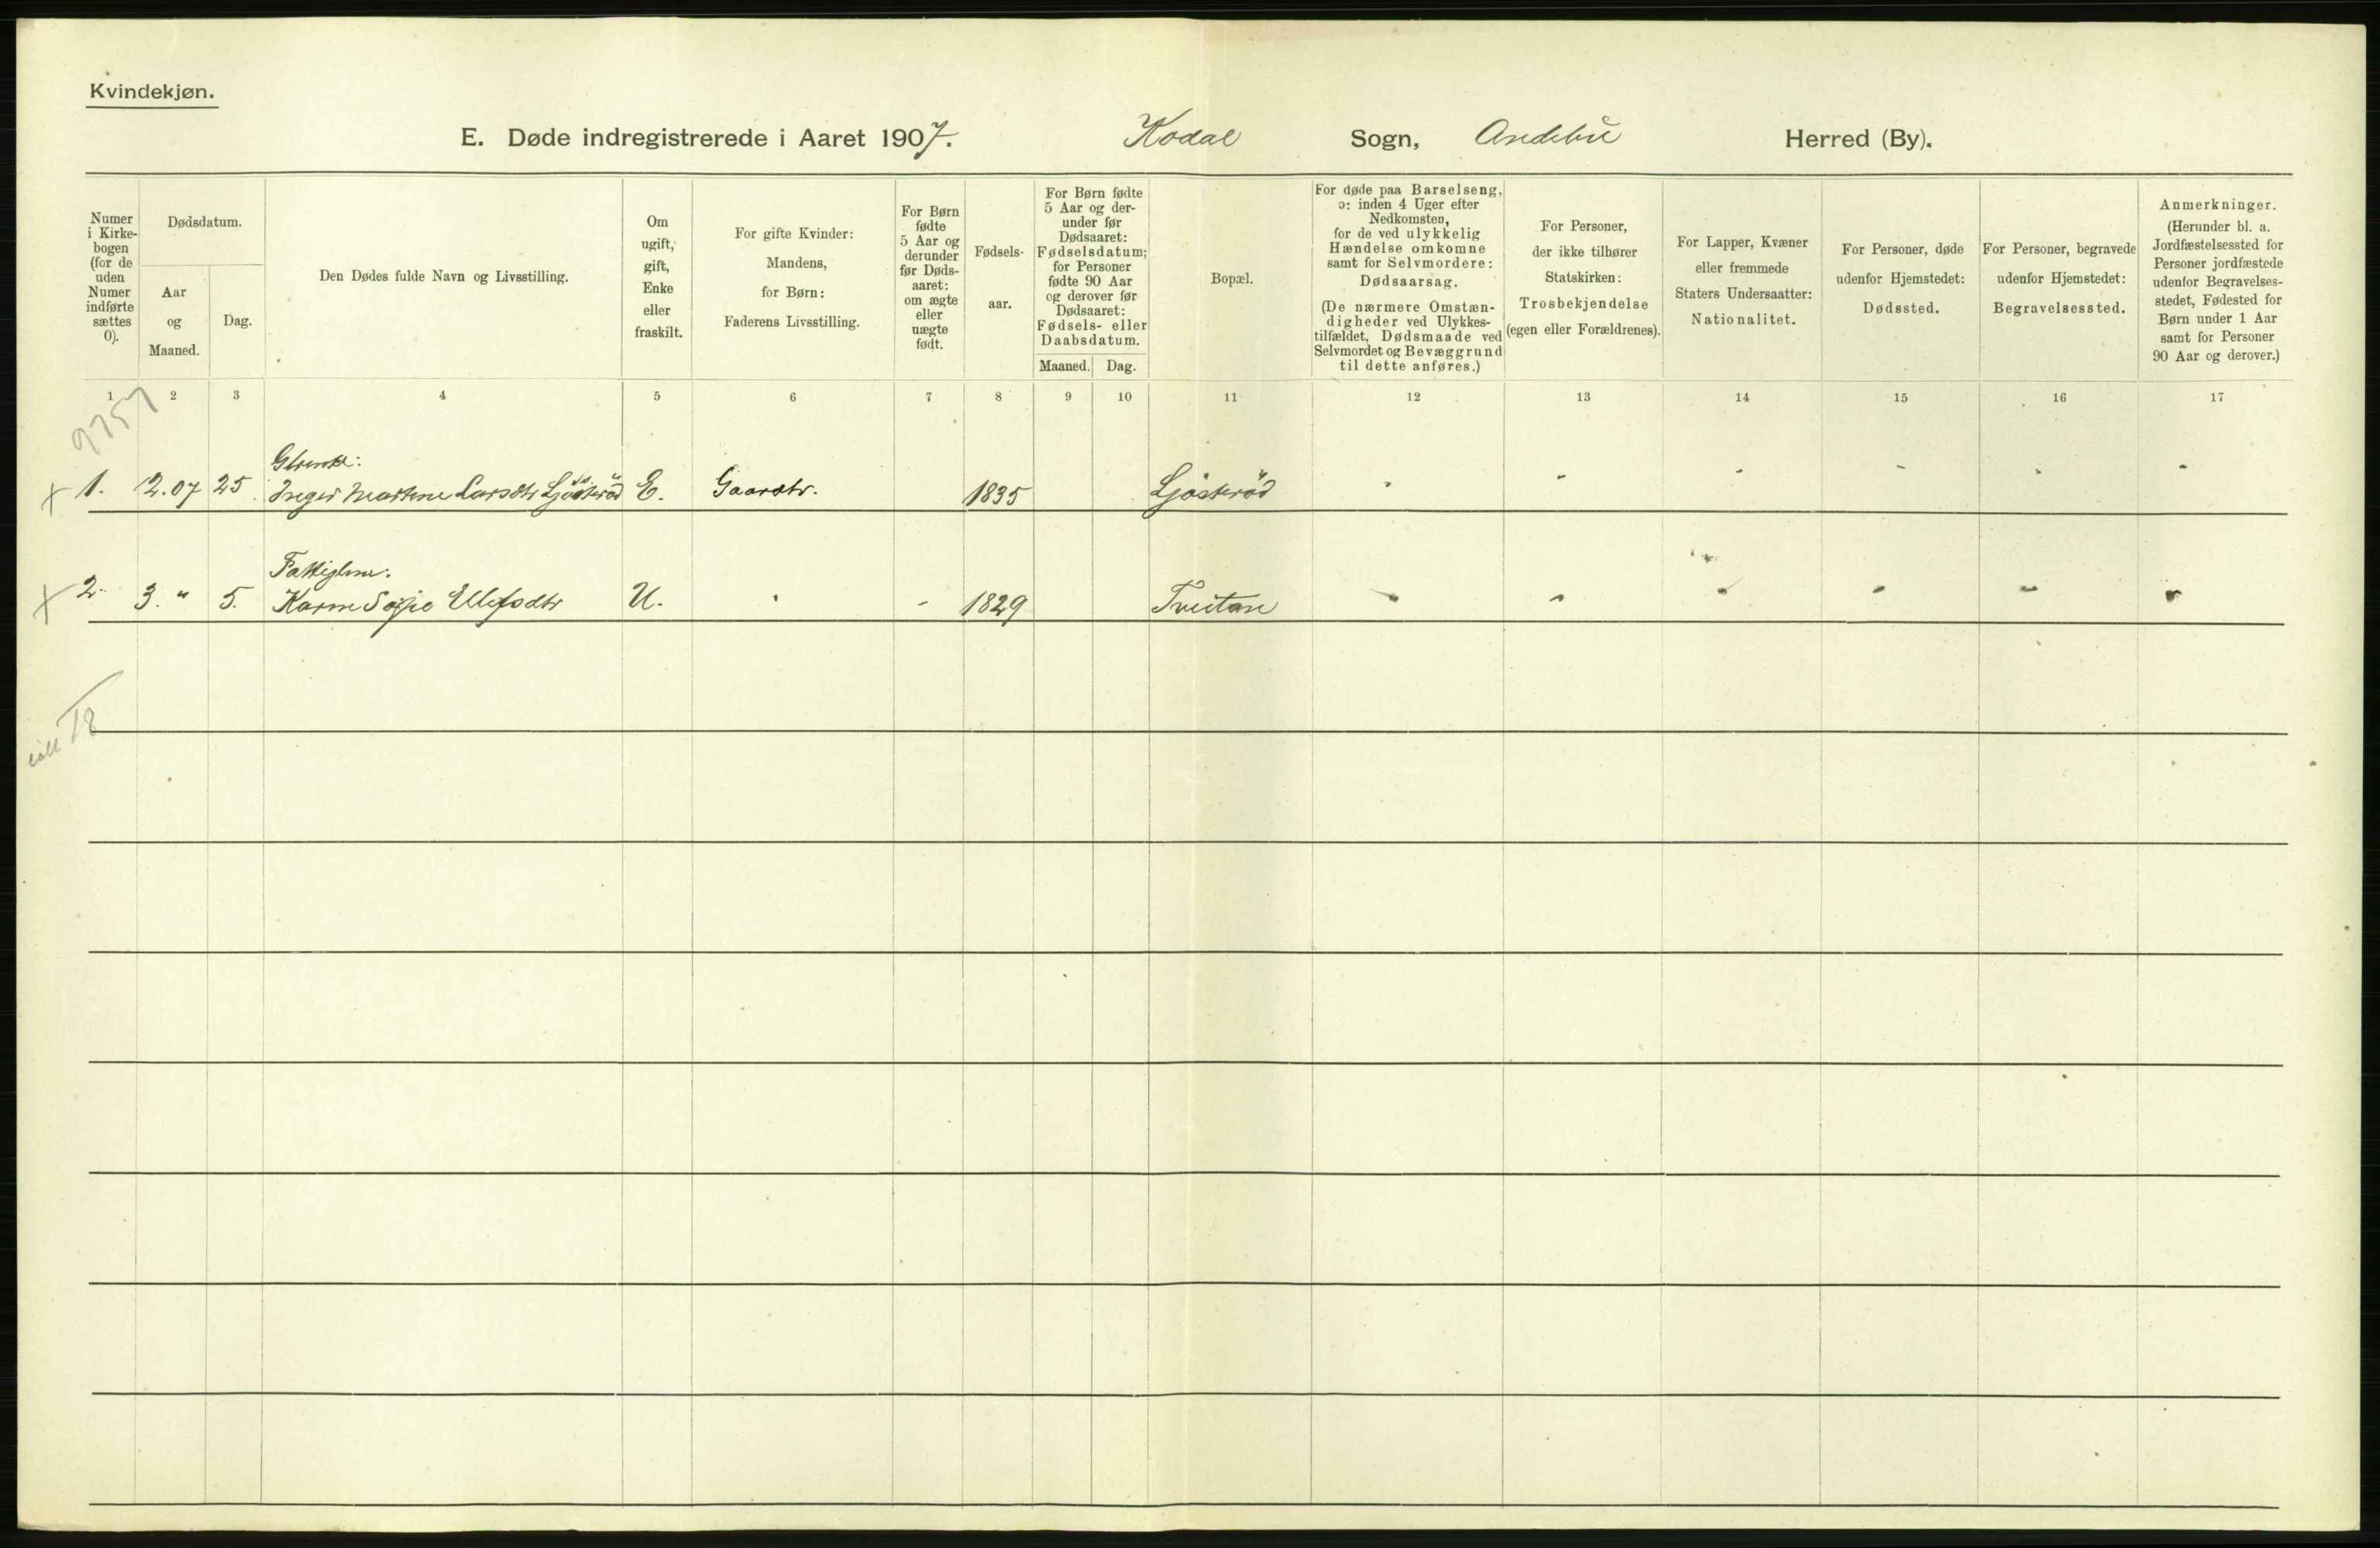 Kvindekjøn.
E. Døde indregistrerede i Aaret 1907. Kodal Sogn, Andebu Herred (By).
Numer
i Kirke-
bogen
(for de
uden
Numer
indførte
sættes
0).
Dødsdatum.
Aar
og
Maaned.
Dag.
Den Dødes fulde Navn og Livsstilling.
Om
ugift,
gift,
Enke
eller
fraskilt.
For gifte Kvinder:
Mandens,
for Børn:
Faderens Livsstilling.
For Børn
fødte
5 Aar og
derunder
før Døds-
aaret:
om ægte
eller
uægte
født.
Fødsels-
aar.
For Børn fødte
5 Aar og der-
under før
Dødsaaret:
Fødselsdatum;
for Personer
fødte 90 Aar
og derover før
Dødsaaret:
Fødsels- eller
Daabsdatum.
Maaned. Dag.
Bopæl.
For døde paa Barselseng,
ɔ: inden 4 Uger efter
Nedkomsten,
for de ved ulykkelig
Hændelse omkomne
samt for Selvmordere:
Dødsaarsag.
(De nærmere Omstæn-
digheder ved Ulykkes-
tilfældet, Dødsmaade ved
Selvmordet og Bevæggrund
til dette anføres.)
For Personer,
der ikke tilhører
Statskirken:
Trosbekjendelse
(egen eller Forældrenes).
For Lapper, Kvæner
eller fremmede
Staters Undersaatter:
Nationalitet.
For Personer, døde
udenfor Hjemstedet:
Dødssted.
For Personer, begravede
udenfor Hjemstedet:
Begravelsessted.
Anmerkninger.
(Herunder bl. a.
Jordfæstelsessted for
Personer jordfæstede
udenfor Begravelses-
stedet, Fødested for
Børn under 1 Aar
samt for Personer
90 Aar og derover.)
1 2 3 4 5 6 7 8 9 10 11 12 13 14 15 16 17
9757
× 1. 2.07 25. Inger Martine Larsdtr Ljøsterød E. Gaardbr. 1835 Ljøsterød - - - - - -
Fattiglem:
× 2. 3. " 5. Karen Sofie Ellefsdtr U. - - 1829 Tveitan - - - - - -
ialt 18